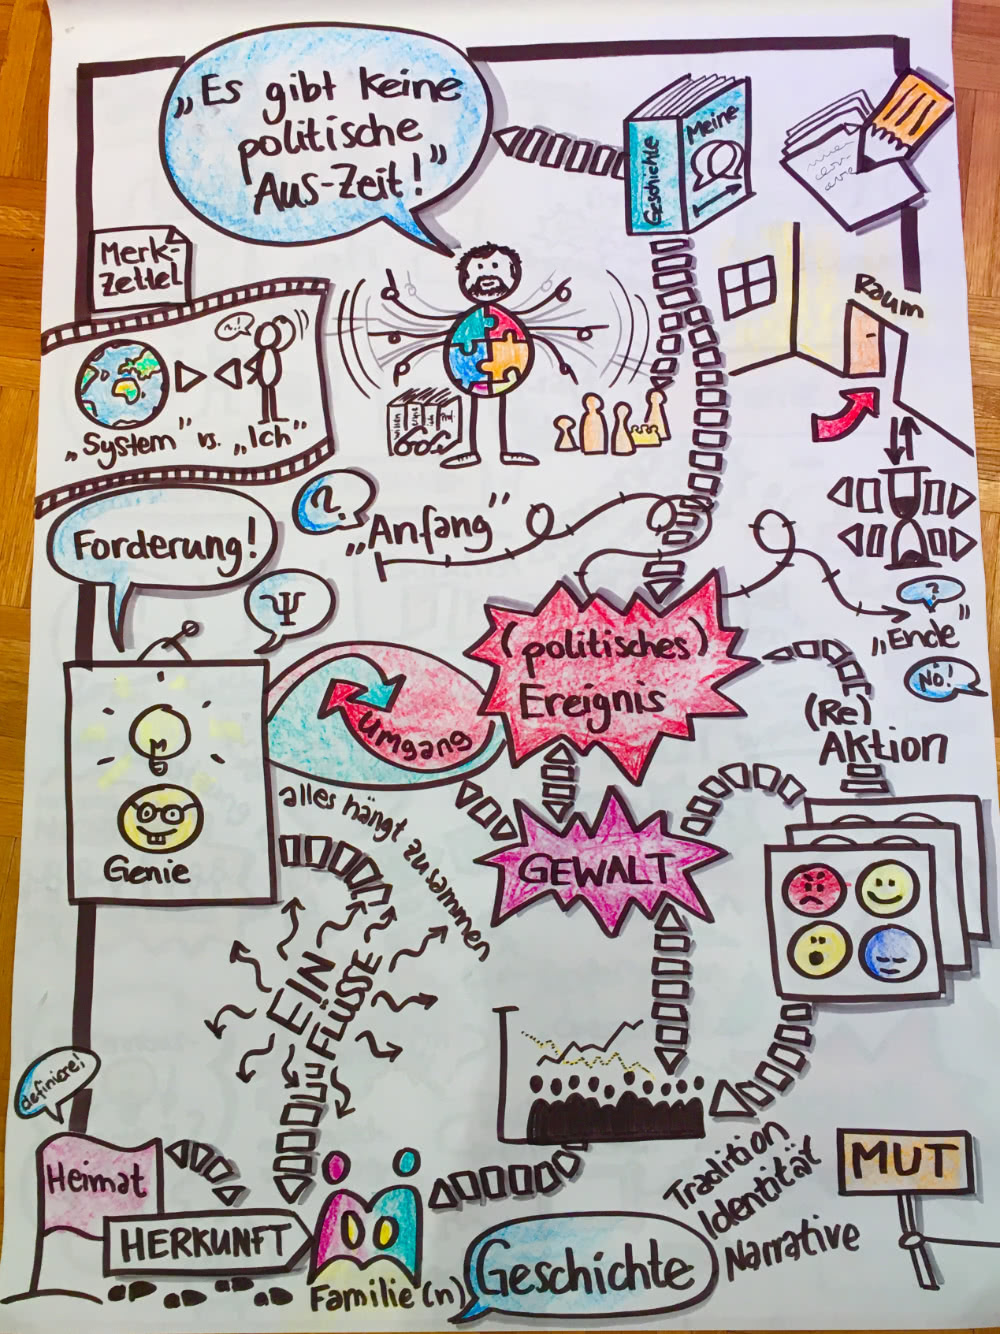 „Es gibt keine
politische
Aus-Zeit!"
Geschichte
Meine
Merk-
zettel
Raum
?!
„System" vs. „Ich"
?
„Anfang"
Forderung!
Ψ
?
„Ende"
Nö!
(politisches)
Ereignis
(Re)
Aktion
Umgang
alles hängt zusammen
GEWALT
Genie
EIN
FLÜSSE
definiere!
Heimat
HERKUNFT
Familie(n)
Geschichte
Tradition
Identität
Narrative
MUT